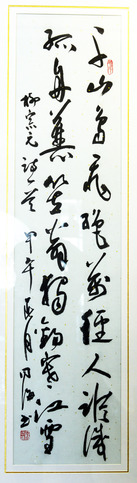 千山鳥飛絕萬徑人蹤滅
孤舟蓑笠翁獨釣寒江雪
柳宗元詩一首 甲午夏月 書